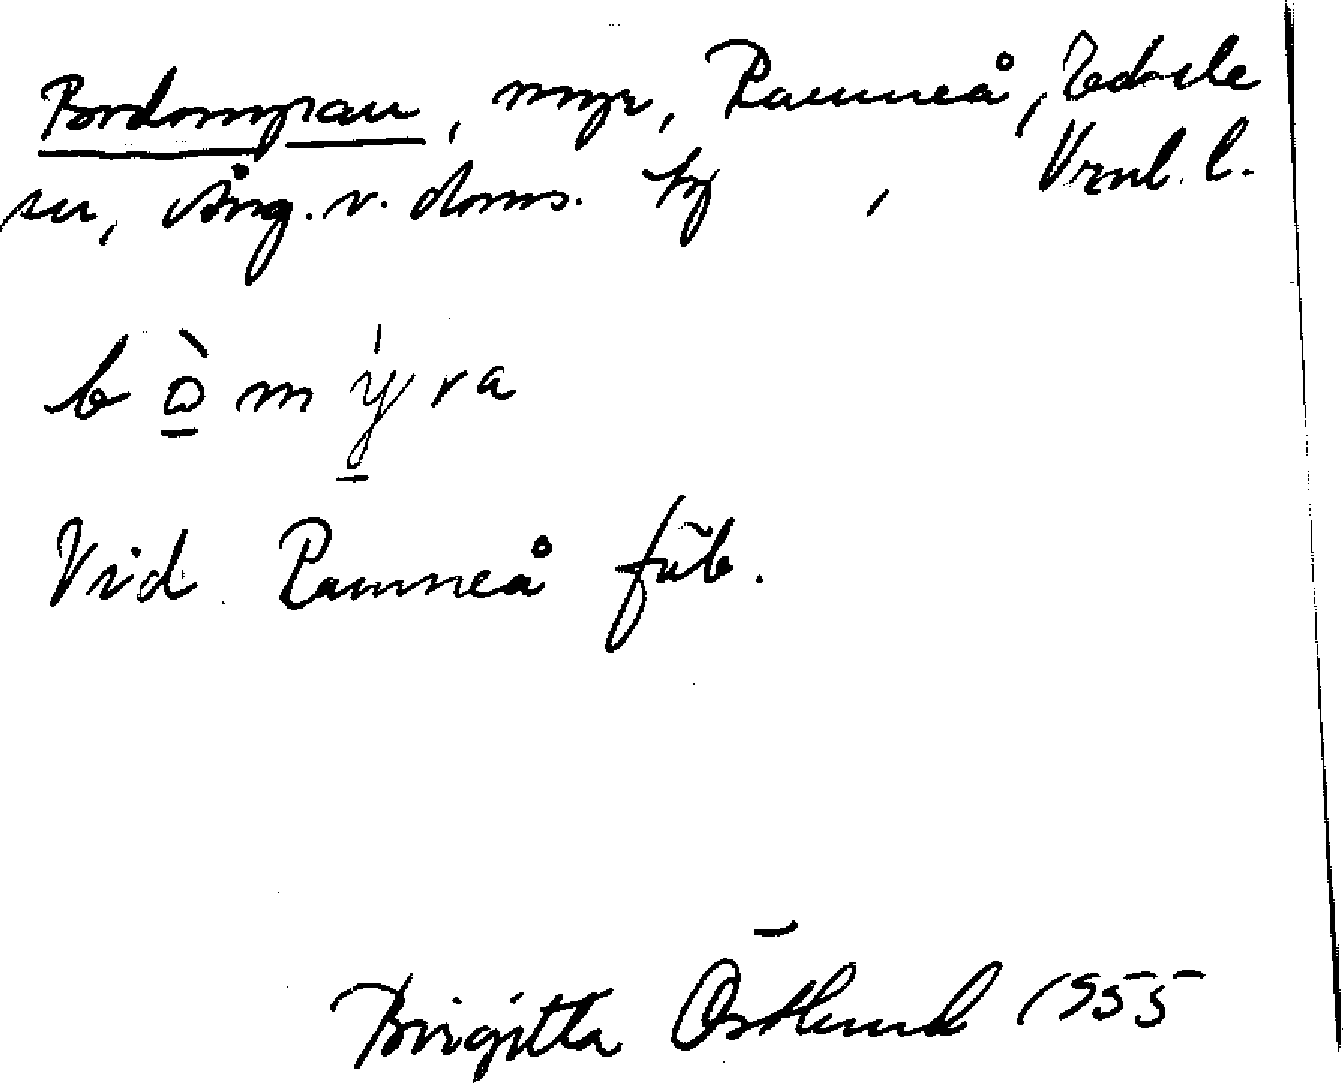 Bordomyran, myr, Ramneå, Edsele
sn, Ång. v. doms. tg , Vrnl. l.
b ò m ý r a
Vid Ramneå fäb.
Birgitta Östlund 1955